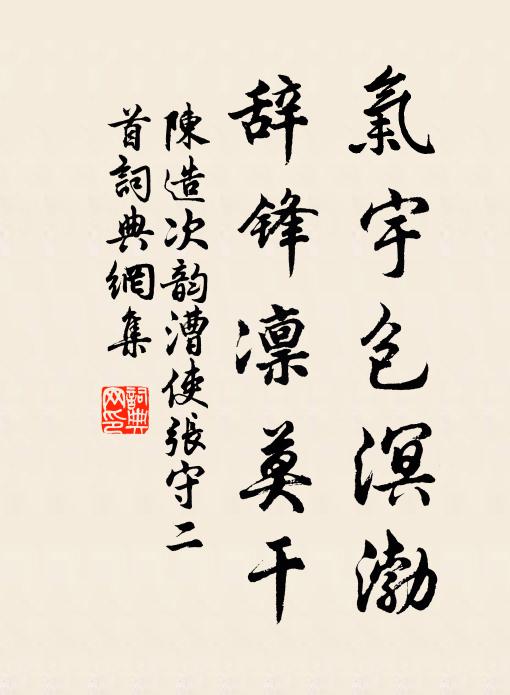 氣宇包溟渤
辞锋凛莫干
陳造次韵漕使張守二
首詞典網集
詞典
网印